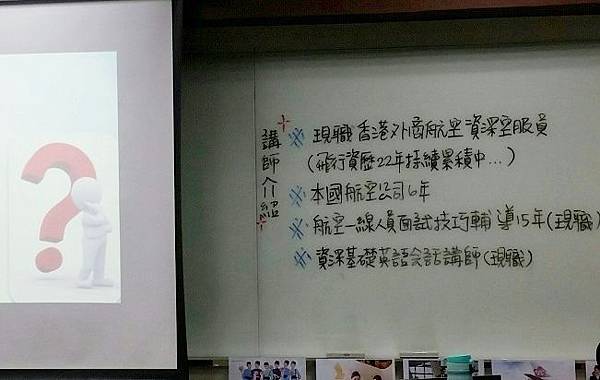 講師介紹
※ 現職香港外商航空資深空服員
(飛行資歷22年持續累積中...)
※ 本國航空公司6年
※ 航空一線人員面試技巧輔導15年(現職)
※ 資深基礎英語会話講師(現職)